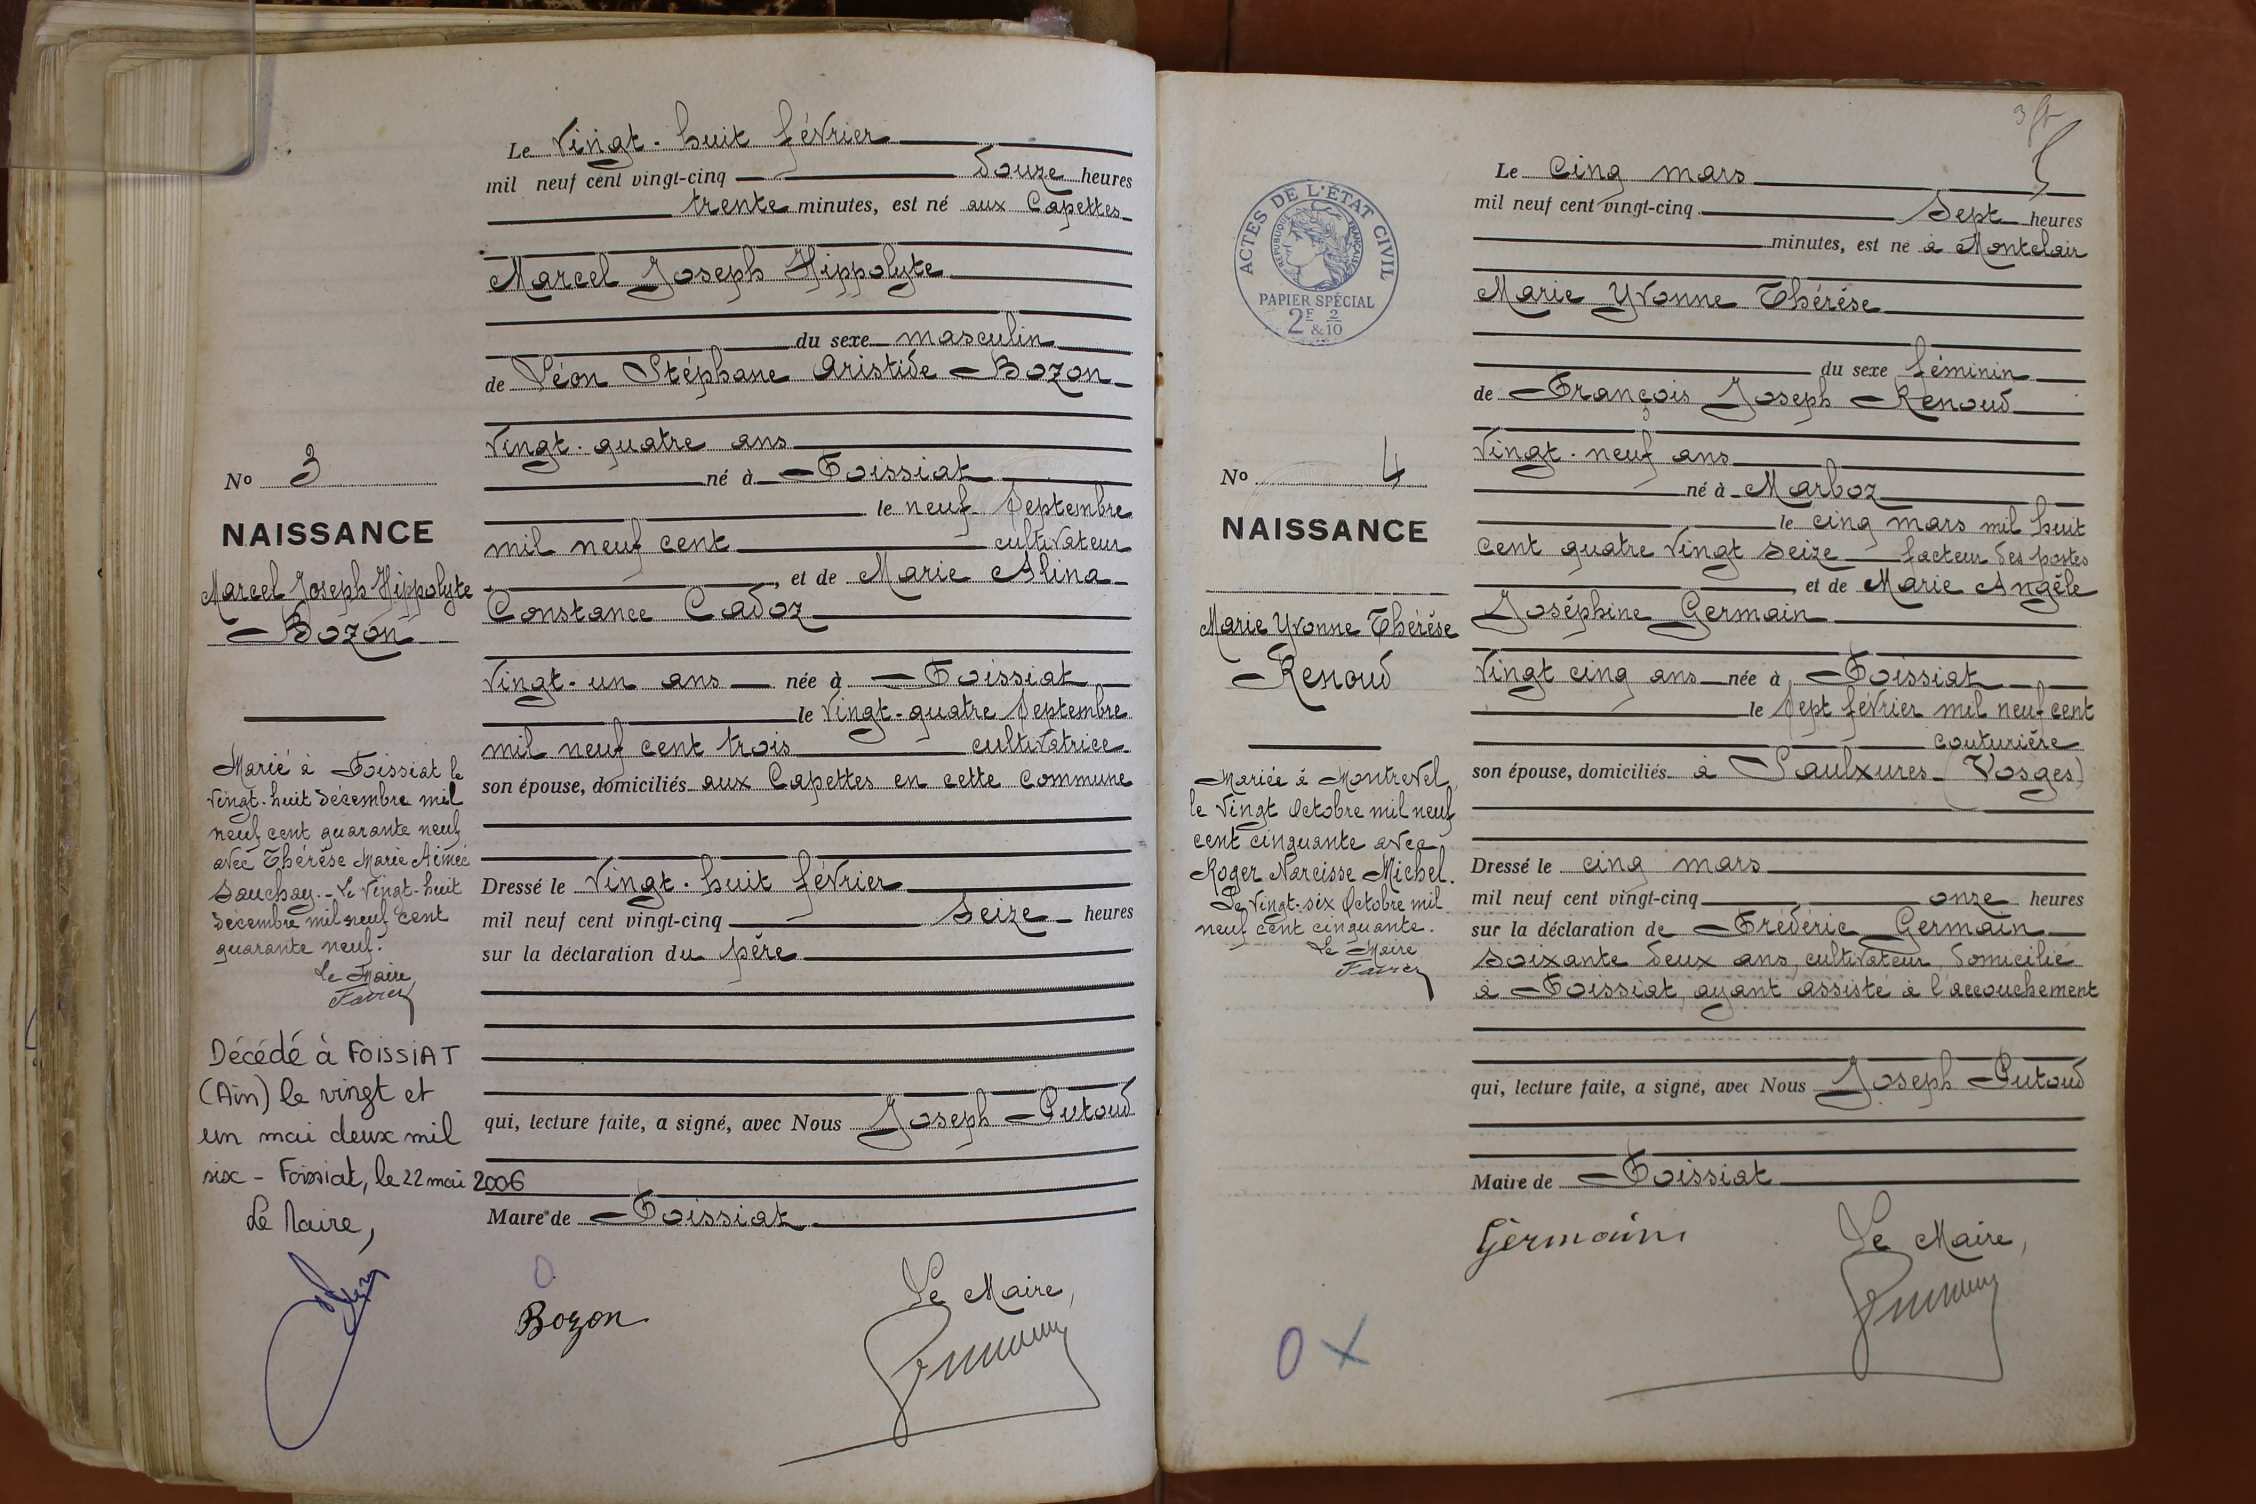 Le Vingt-huit février
mil neuf cent vingt-cinq douze heures
trente minutes, est né aux Capettes
Marcel Joseph Hippolyte
du sexe masculin
de Léon Stéphane Aristide Bozon
Vingt-quatre ans
né à Foissiat
le neuf Septembre
mil neuf cent cultivateur
, et de Marie Alina
Constance Cadoz
Vingt-un ans née à Foissiat
le Vingt-quatre Septembre
mil neuf cent trois cultivatrice
son épouse, domiciliés aux Capettes en cette commune
Dressé le Vingt-huit février
mil neuf cent vingt-cinq Seize heures
sur la déclaration du père
qui, lecture faite, a signé, avec Nous Joseph Putoud
Maire de Foissiat
Bozon
Le Maire,
No 3
NAISSANCE
Marcel Joseph Hippolyte
Bozon
Marié à Foissiat le
Vingt-huit décembre mil
neuf cent quarante neuf
avec Thérèse Marie Aimée
Sauchay.- Le Vingt-huit
décembre mil neuf cent
quarante neuf.
Le Maire
Favier
Décédé à FOISSIAT
(Ain) le vingt et
un mai deux mil
six - Foissiat, le 22 mai 2006
Le Maire,
5
Le cinq mars
mil neuf cent vingt-cinq Sept heures
minutes, est né à Montclair
Marie Yvonne Thérèse
du sexe féminin
de François Joseph Renoud
Vingt-neuf ans
né à Marboz
le cinq mars mil huit
cent quatre vingt seize facteur des postes
, et de Marie Angèle
Joséphine Germain
Vingt cinq ans née à Foissiat
le Sept février mil neuf cent
couturière
son épouse, domiciliés à Saulxures (Vosges)
Dressé le cinq mars
mil neuf cent vingt-cinq onze heures
sur la déclaration de Frédéric Germain
soixante deux ans, cultivateur, domicilié
à Foissiat, ayant assisté à l'accouchement
qui, lecture faite, a signé, avec Nous Joseph Putoud
Maire de Foissiat
Germain
Le Maire,
ACTES DE L'ÉTAT CIVIL
RÉPUBLIQUE FRANÇAISE
PAPIER SPÉCIAL
2F & 2/10
No 4
NAISSANCE
Marie Yvonne Thérèse
Renoud
Mariée à Montrevel,
le Vingt Octobre mil neuf
cent cinquante avec
Roger Narcisse Michel.
Le Vingt-six Octobre mil
neuf cent cinquante.
Le Maire
Favier
O X